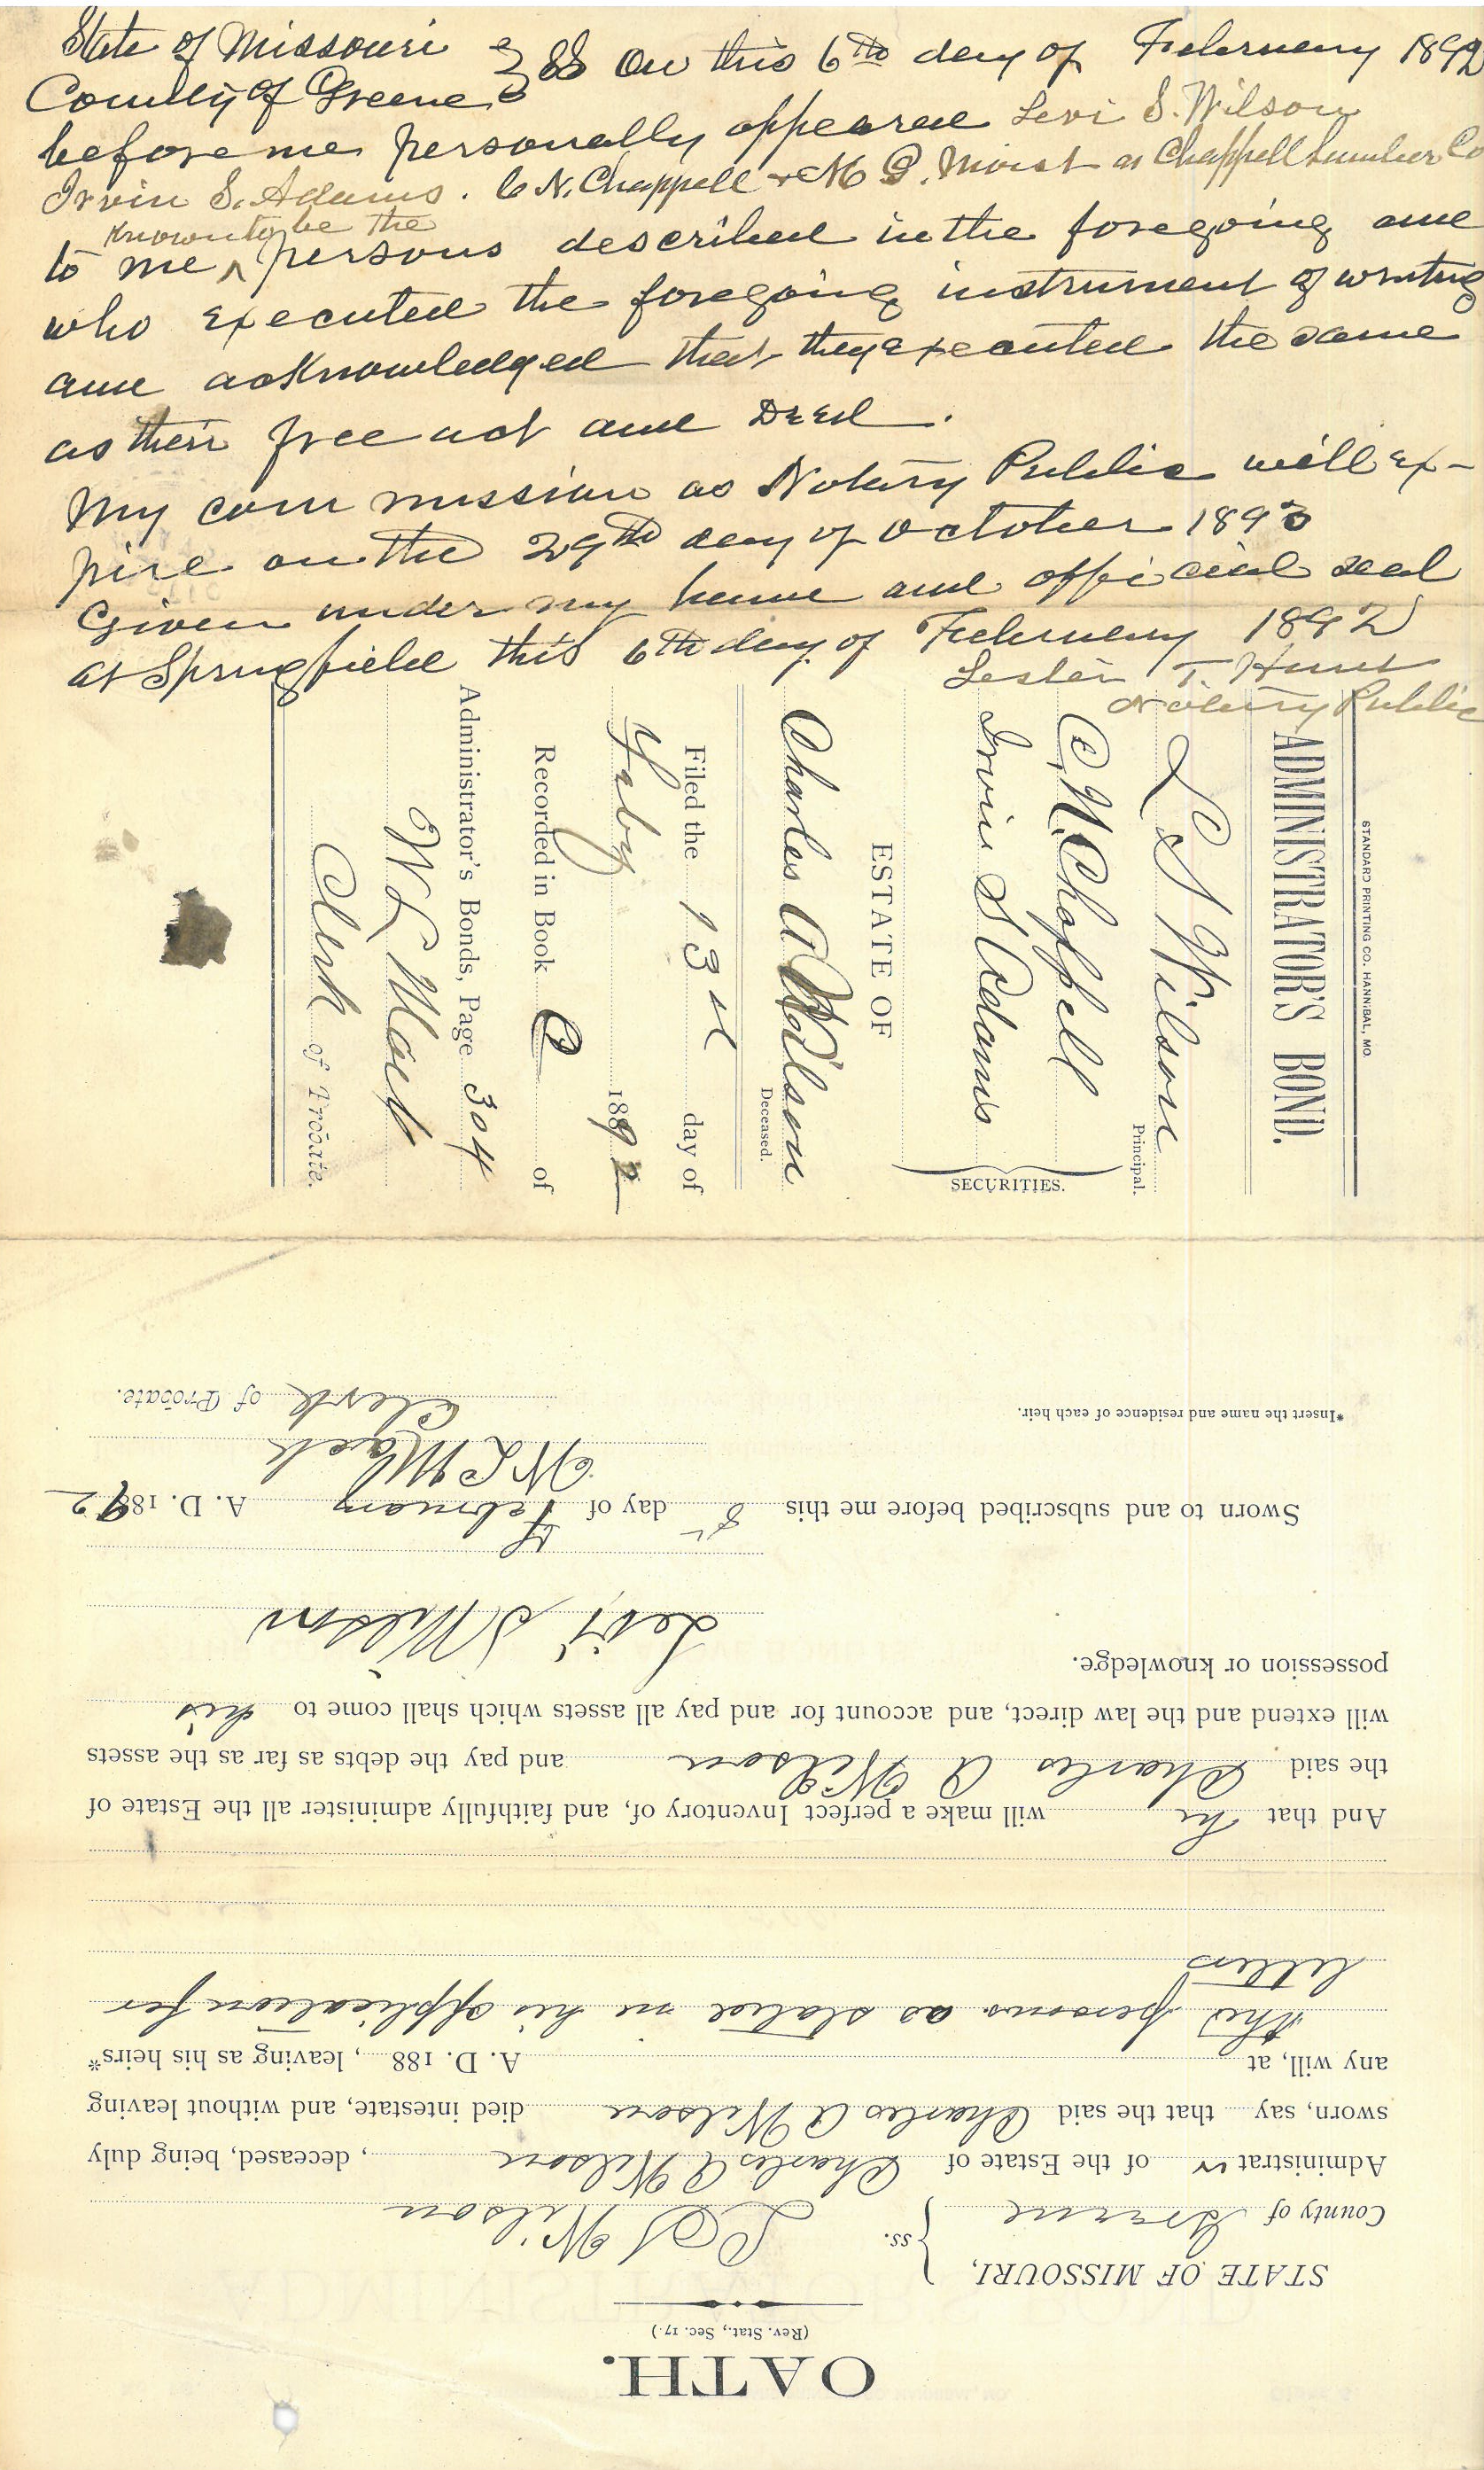 State of Missouri } SS On this 6th day of February 1892
County of Greene
before me personally appeared Levi S. Wilson
Irvin S. Adams. C N. Chappell & M as Chappell Lumber Co
known to be the
to me ^ persons described in the foregoing and
who executed the foregoing instrument of writing
and acknowledged that they executed the same
as their free act and Deed.
My commission as Notary Public will ex-
pire on the 29th day of October 1893
Given under my hand and official seal
at Springfield this 6th day of February 1892
Lester T. Hunt
Notary Public
STANDARD PRINTING CO. HANNIBAL, MO.
ADMINISTRATOR'S BOND.
L S Wilson
Principal.
C. N. Chappell
Irvin S Adams
SECURITIES.
ESTATE OF
Charles A Wilson
Deceased.
Filed the 13th day of
Feby 1892
Recorded in Book C of
Administrator's Bonds, Page 304
W L Mack
Clerk of Probate.
OATH.
(Rev. Stat., Sec. 17.)
STATE OF MISSOURI,
County of Greene } ss. L S Wilson
Administrator of the Estate of Charles A Wilson, deceased, being duly
sworn, say that the said Charles A Wilson died intestate, and without leaving
any will, at A. D. 188 , leaving as his heirs*
the persons as stated in his application for
letters
And that he will make a perfect Inventory of, and faithfully administer all the Estate of
the said Charles A Wilson and pay the debts as far as the assets
will extend and the law direct, and account for and pay all assets which shall come to his
possession or knowledge.
Levi S Wilson
Sworn to and subscribed before me this 8 day of February A. D. 1892
W L Mack
Clerk of Probate.
*Insert the name and residence of each heir.